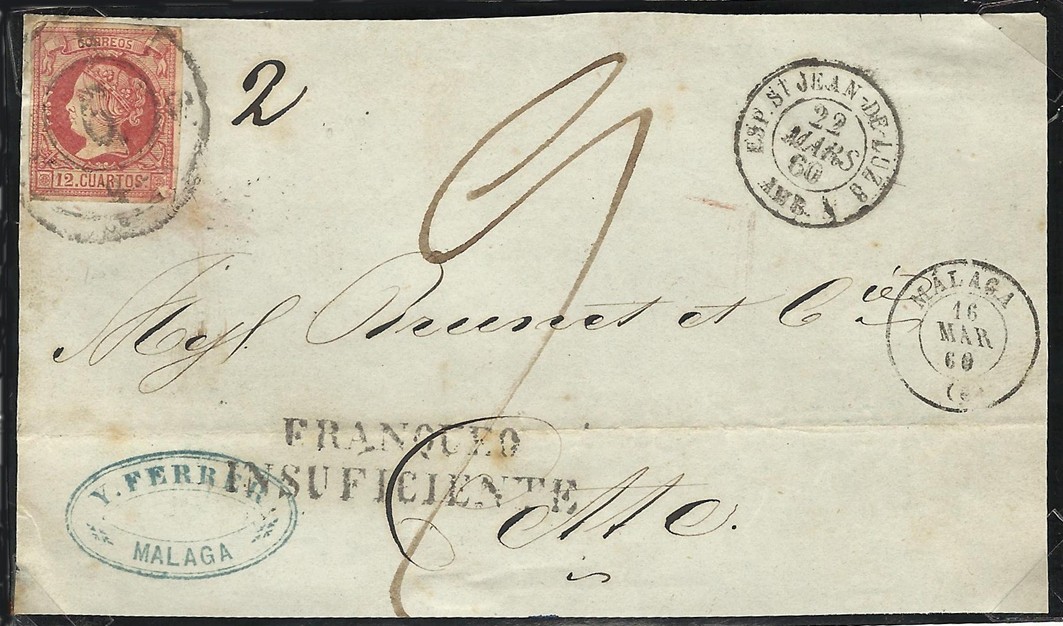 CORREOS
12. CUARTOS
2
ESP. St JEAN-DE-LUZ 8
22
MARS
60
AMB. A
MÁLAGA
16
MAR
60
Brunet et Cie
FRANQUEO
INSUFICIENTE
Y. FERRER
MALAGA
Cette.